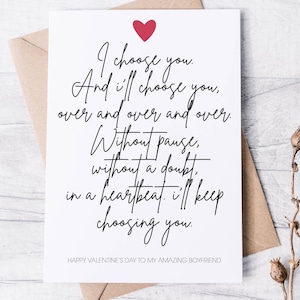 I choose you.
And i'll choose you,
over and over and over.
Without pause,
without a doubt,
in a heartbeat. i'll keep
choosing you.
HAPPY VALENTINE'S DAY TO MY AMAZING BOYFRIEND